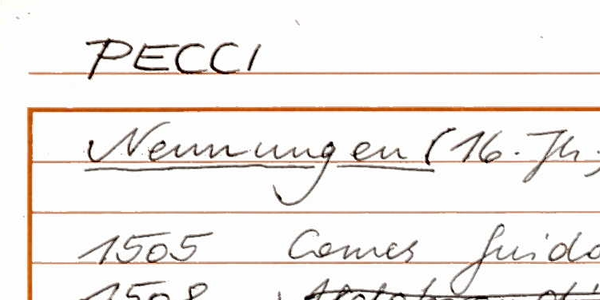 PECCI
Nennungen (16. Jh.)
1505 Comes Guido
1508